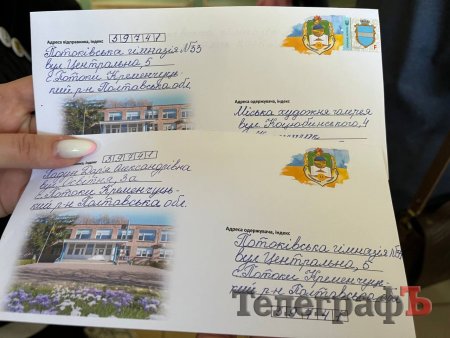 Адреса відправника, індекс 39741
Потоківська гімназія №33
вул Центральна, 5
с Потоки Кременчуць-
кий р-н Полтавська обл
Адреса одержувача, індекс
Міська художня галерея
вул. Коцюбинського, 4
39741
Дар'я Олександрівна
вул. Освітня, 3а
с Потоки Кременчуць-
кий р-н Полтавська обл.
Адреса одержувача, індекс
Потоківська гімназія
вул Центральна, 5
с Потоки Кременчуць-
кий р-н Полтавська обл
39741
F
ТелеграфЪ